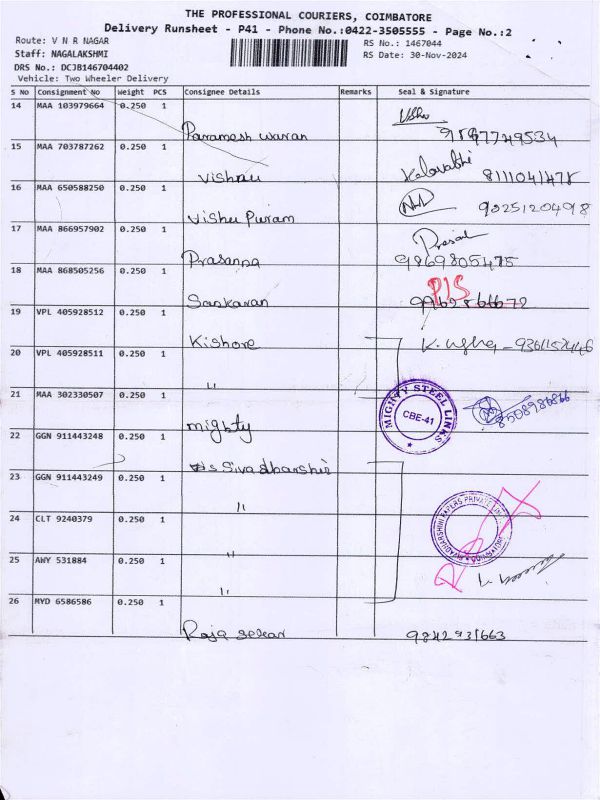 THE PROFESSIONAL COURIERS, COIMBATORE
Delivery Runsheet - P41 - Phone No.:0422-3505555 - Page No.:2
Route: V N R NAGAR
Staff: NAGALAKSHMI
DRS No.: DCJB146704402
Vehicle: Two Wheeler Delivery
RS No.: 1467044
RS Date: 30-Nov-2024
S No Consignment No Weight PCS Consignee Details Remarks Seal & Signature
14 MAA 103979664 0.250 1
Parameshwaran Usha 9867749534
15 MAA 703787262 0.250 1
Vishnu 8111041478
16 MAA 650588250 0.250 1
Vishu Puram 9025120498
17 MAA 866957902 0.250 1
Prasanna 9869805475
18 MAA 868505256 0.250 1
Sankaran P15
19 VPL 405928512 0.250 1
Kishore
20 VPL 405928511 0.250 1
"
21 MAA 302330507 0.250 1
mighty MIGHTY STEEL LINKS CBE-41
22 GGN 911443248 0.250 1
23 GGN 911443249 0.250 1
"
24 CLT 9240379 0.250 1
"
25 AWY 531884 0.250 1
"
26 MYD 6586586 0.250 1
Raja sekar 9842931663